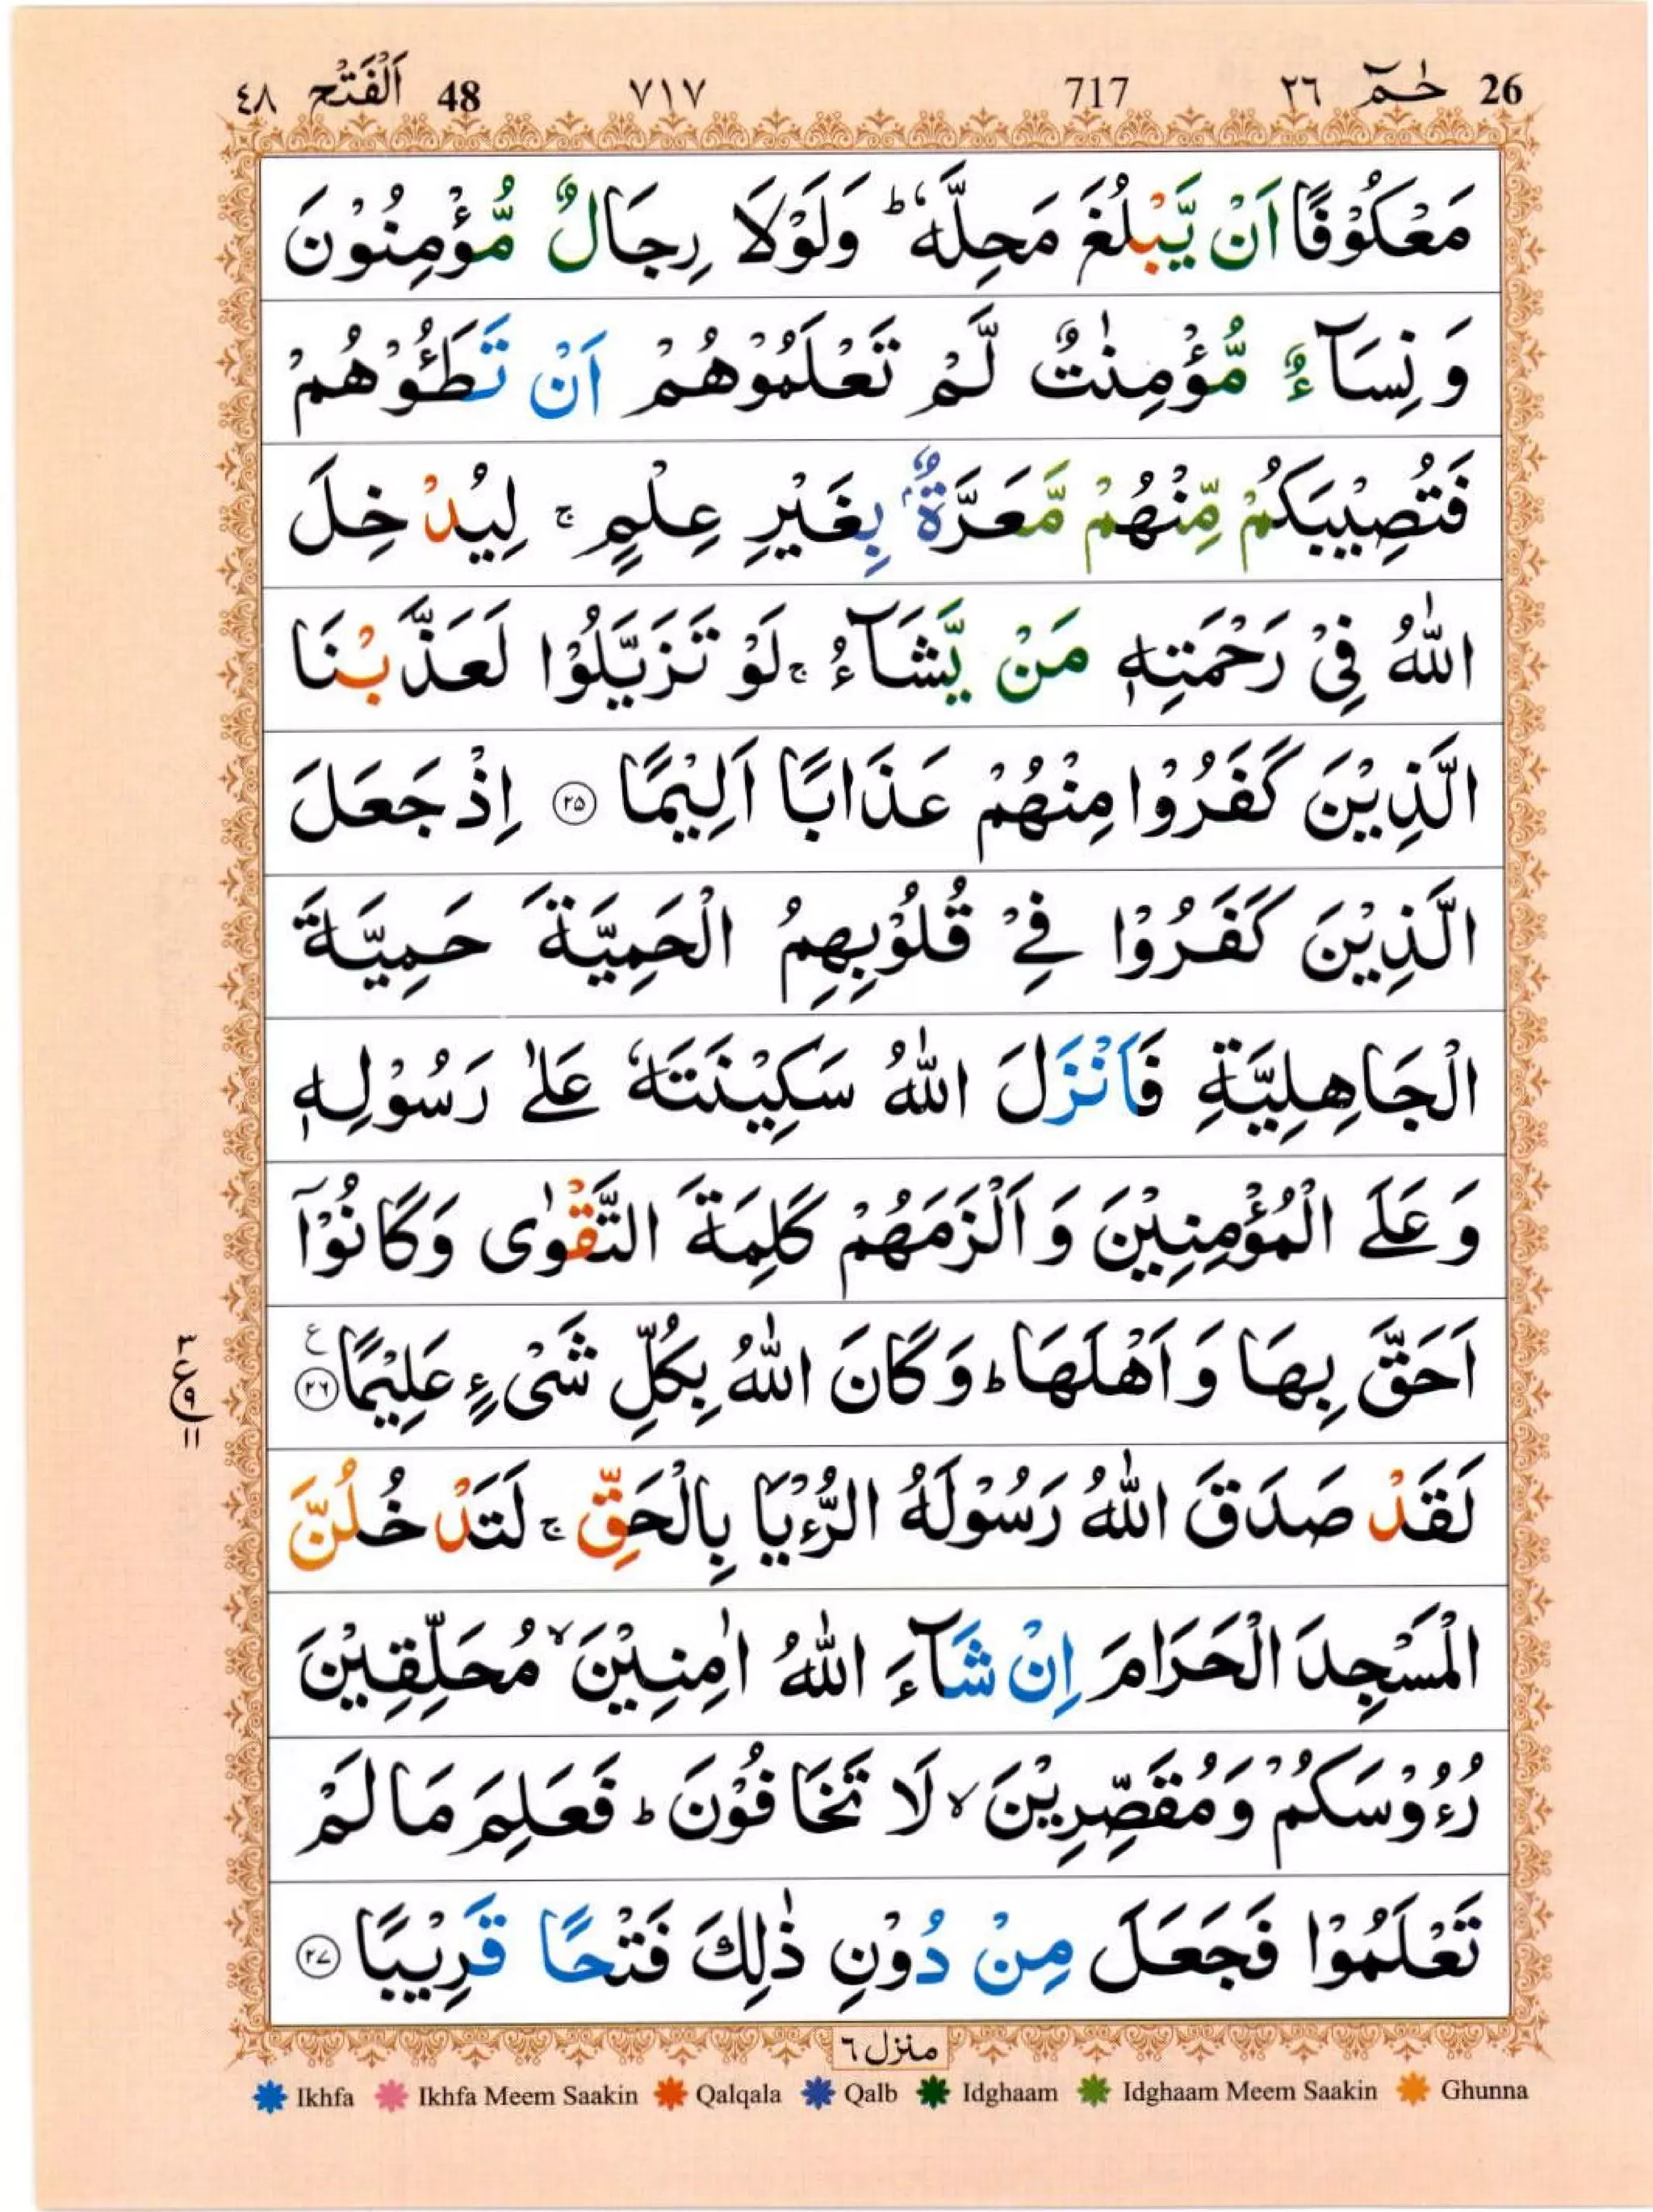 26 حٰمٓ ٢٦ 717 ٧١٧ 48 اَلْفَتْح ٤٨
مَعْكُوْفًا اَنْ يَّبْلُغَ مَحِلَّهٗ ؕ وَلَوْلَا رِجَالٌ مُّؤْمِنُوْنَ
وَ نِسَآءٌ مُّؤْمِنٰتٌ لَّمْ تَعْلَمُوْهُمْ اَنْ تَطَـُٔوْهُمْ
فَتُصِيْبَكُمْ مِّنْهُمْ مَّعَرَّةٌۢ بِغَيْرِ عِلْمٍ ۚ لِيُدْخِلَ
اللّٰهُ فِىْ رَحْمَتِهٖ مَنْ يَّشَآءُ ۚ لَوْ تَزَيَّلُوْا لَعَذَّبْنَا
الَّذِيْنَ كَفَرُوْا مِنْهُمْ عَذَابًا اَلِيْمًا ۲۵ اِذْ جَعَلَ
الَّذِيْنَ كَفَرُوْا فِيْ قُلُوْبِهِمُ الْحَمِيَّةَ حَمِيَّةَ
الْجَاهِلِيَّةِ فَاَنْزَلَ اللّٰهُ سَكِيْنَتَهٗ عَلٰى رَسُوْلِهٖ
وَ عَلَى الْمُؤْمِنِيْنَ وَ اَلْزَمَهُمْ كَلِمَةَ التَّقْوٰى وَكَانُوْٓا
اَحَقَّ بِهَا وَ اَهْلَهَا ؕ وَ كَانَ اللّٰهُ بِكُلِّ شَىْءٍ عَلِيْمًا ۲۶ ع
۳
ع
۹
۱۱
لَقَدْ صَدَقَ اللّٰهُ رَسُوْلَهُ الرُّءْيَا بِالْحَقِّ ۚ لَتَدْخُلُنَّ
الْمَسْجِدَ الْحَرَامَ اِنْ شَآءَ اللّٰهُ اٰمِنِيْنَ ۙ مُحَلِّقِيْنَ
رُءُوْسَكُمْ وَمُقَصِّرِيْنَ ۙ لَا تَخَافُوْنَ ؕ فَعَلِمَ مَا لَمْ
تَعْلَمُوْا فَجَعَلَ مِنْ دُوْنِ ذٰلِكَ فَتْحًا قَرِيْبًا ۲۷
منزل ٦
Ikhfa Ikhfa Meem Saakin Qalqala Qalb Idghaam Idghaam Meem Saakin Ghunna